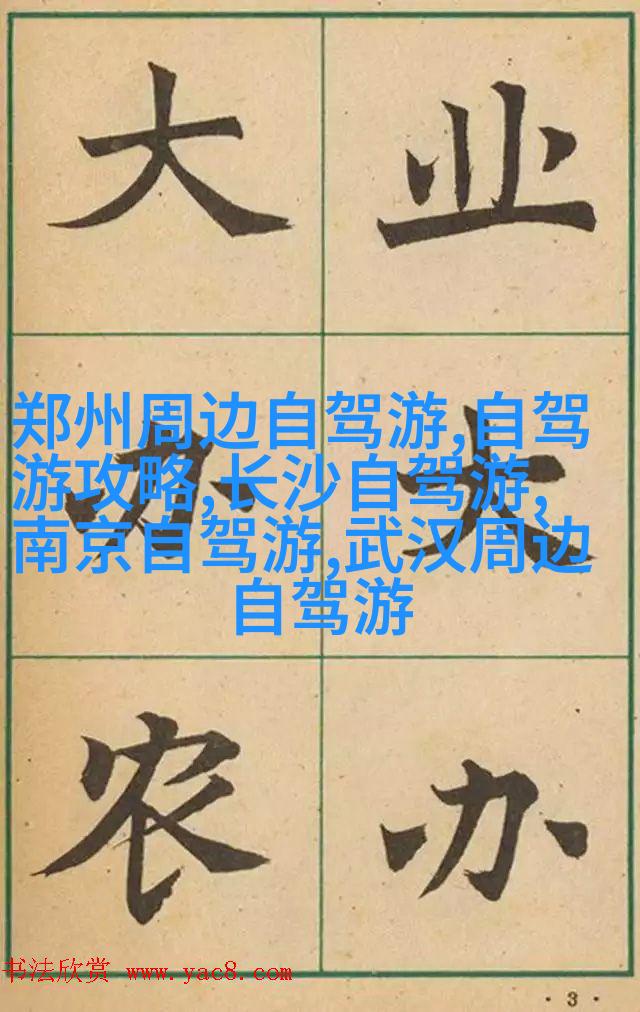 大 业
郑州周边自驾游,自驾
游攻略,长沙自驾游,
南京自驾游,武汉周边
自驾游
办 大
农 办
书法欣赏 www.yac8.com
·3·